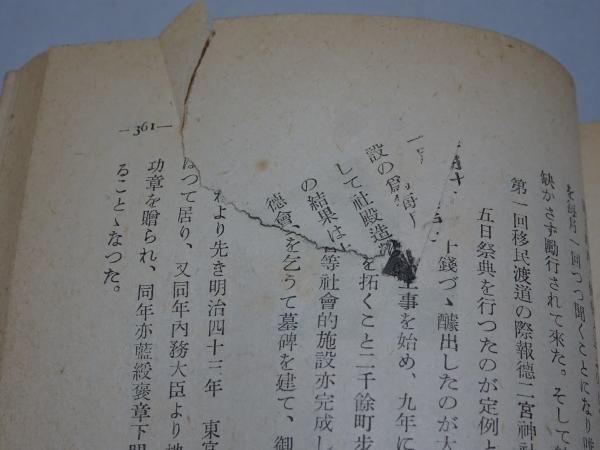 を毎月一回づつ開くことになり
缺かさず勵行されて來た。そして
第一回移民渡道の際報德二宮神社
五日祭典を行つたのが定例と
十錢づゝ醵出したのが
設の爲毎月
工事を始め、九年に
して社殿造
を拓くこと二千餘町步
の結果は
等社會的施設亦完成し
德會
を乞うて墓碑を建て、御
より先き明治四十三年 東宮
つて居り、又同年內務大臣より
功章を贈られ、同年亦藍綬褒章下
ることゝなつた。
—361—